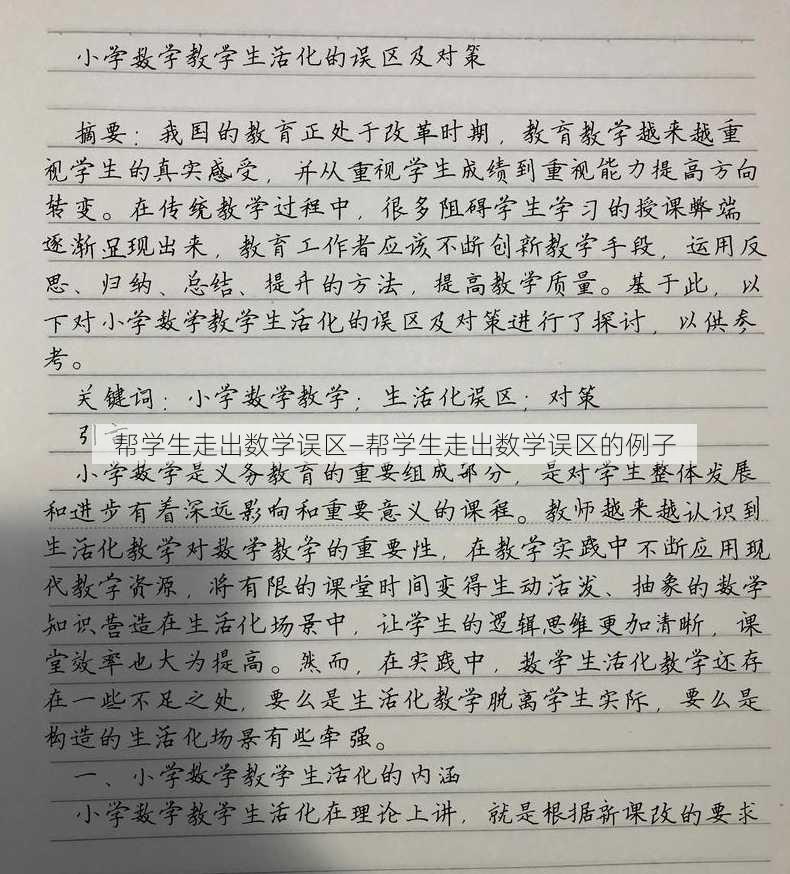 小学数学教学生活化的误区及对策
摘要：我国的教育正处于改革时期，教育教学越来越重
视学生的真实感受，并从重视学生成绩到重视能力提高方向
转变。在传统教学过程中，很多阻碍学生学习的授课弊端
逐渐显现出来，教育工作者应该不断创新教学手段，运用反
思、归纳、总结、提升的方法，提高教学质量。基于此，以
下对小学数学教学生活化的误区及对策进行了探讨，以供参
考。
关键词：小学数学教学；生活化误区；对策
引
帮学生走出数学误区—帮学生走出数学误区的例子
小学数学是义务教育的重要组成部分，是对学生整体发展
和进步有着深远影响和重要意义的课程。教师越来越认识到
生活化教学对数学教学的重要性，在教学实践中不断应用现
代教学资源，将有限的课堂时间变得生动活泼、抽象的数学
知识营造在生活化场景中，让学生的逻辑思维更加清晰，课
堂效率也大为提高。然而，在实践中，数学生活化教学还存
在一些不足之处，要么是生活化教学脱离学生实际，要么是
构造的生活化场景有些牵强。
一、小学数学教学生活化的内涵
小学数学教学生活化在理论上讲，就是根据新课改的要求